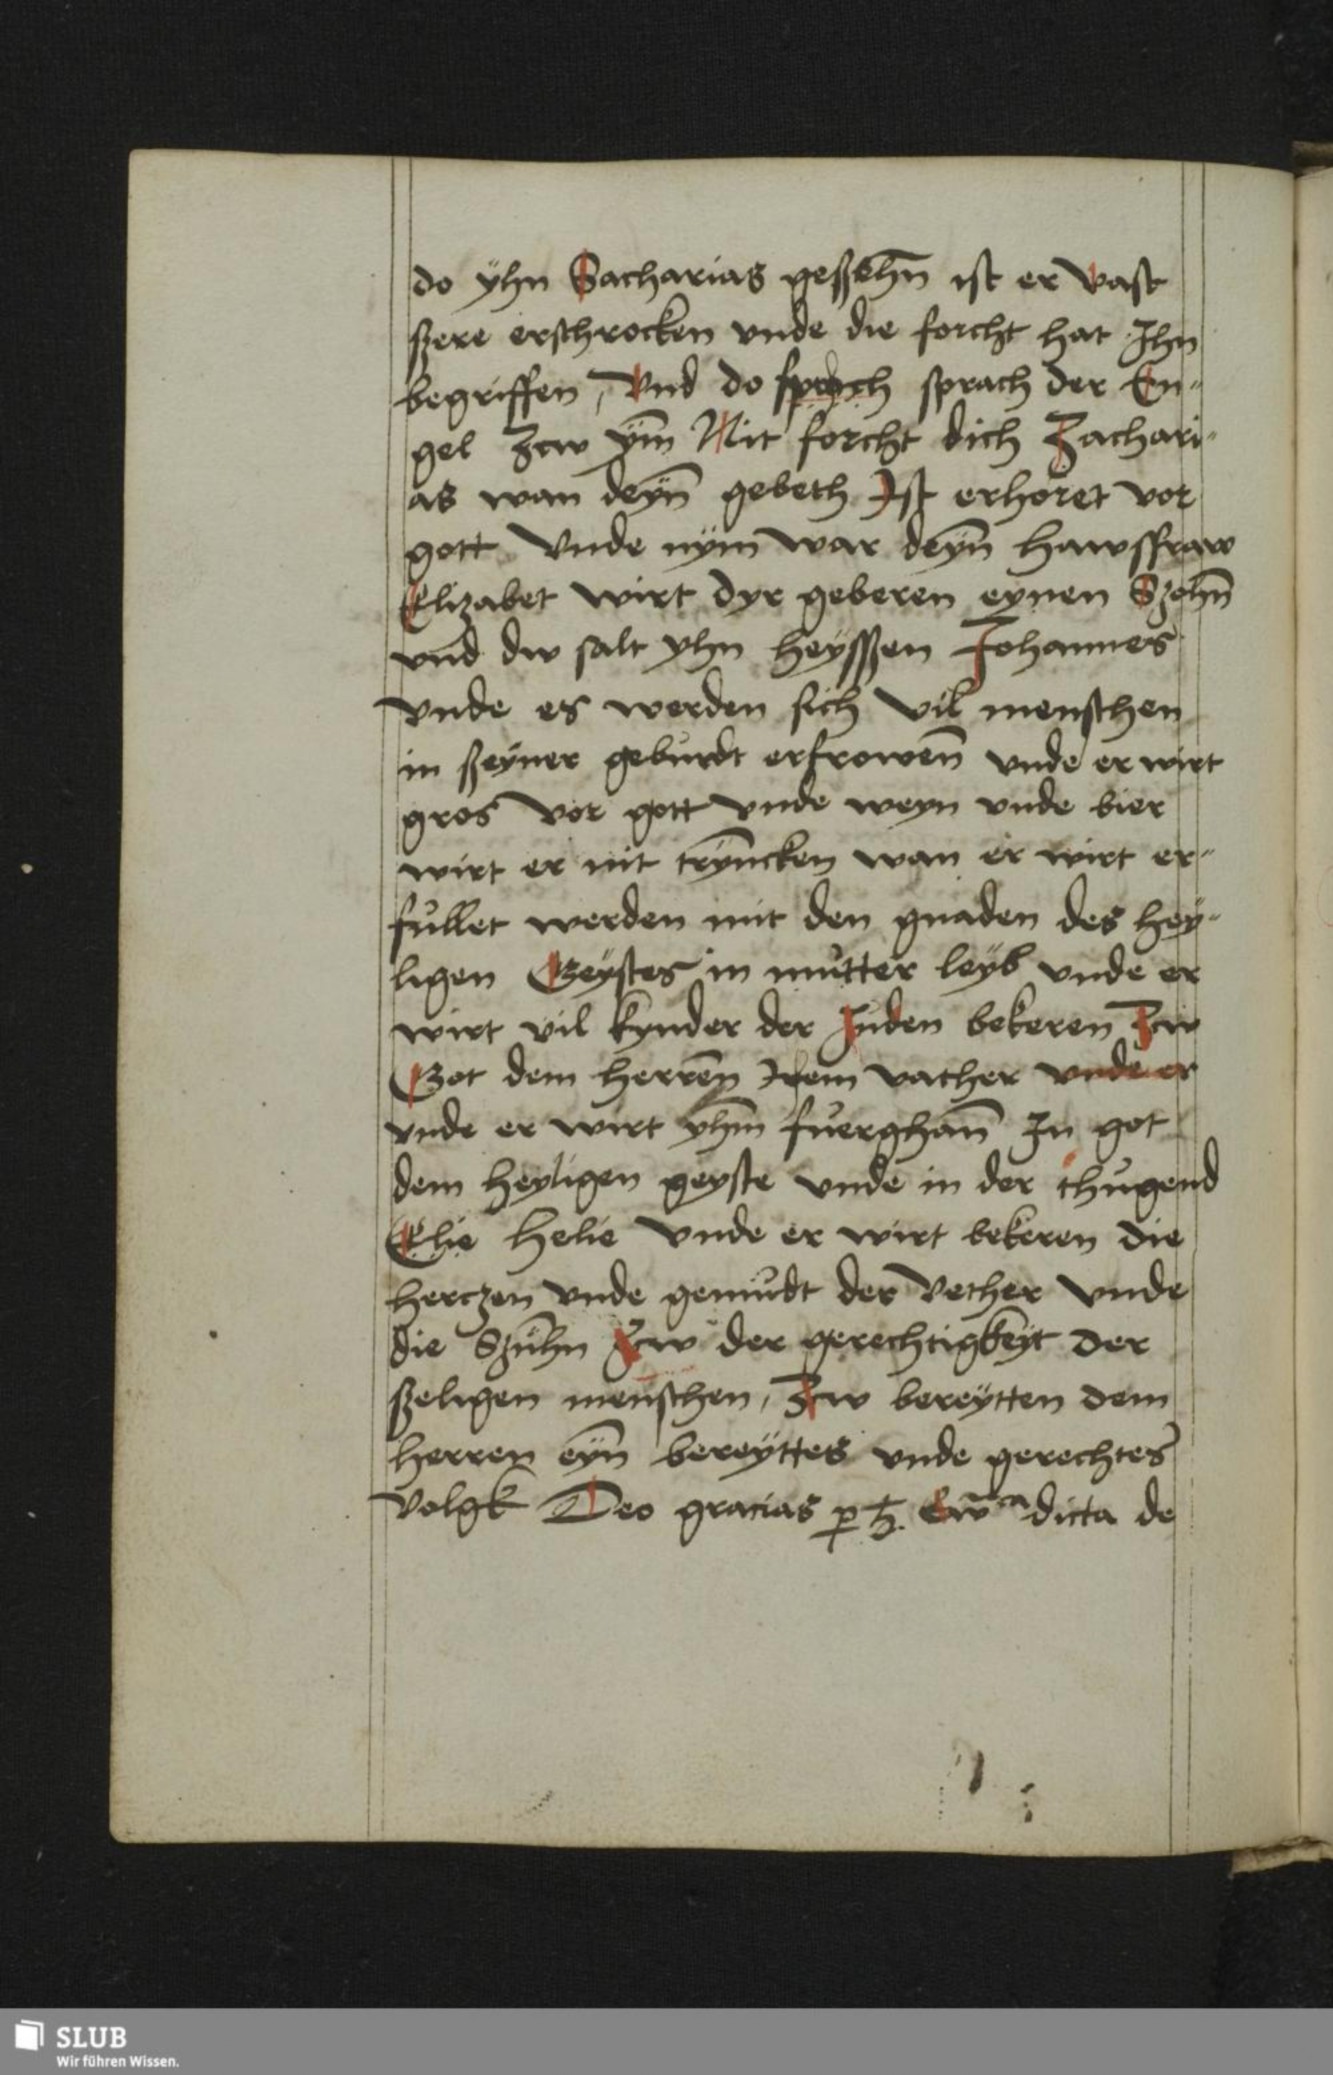 do ÿhn Sacharias geßehn̄ ist er vast
ßere erschrocken vnde die forcht hat Jhn
begriffen, Vnd do sprach sprach der En-
gel Zcw ÿm̄ Nit forcht dich Zachari-
as wan deÿn̄ gebeth Jst erhoret vor
gott Vnde nÿm war deÿn̄ hawssfraw
Elizabet wirt dyr geberen eynen Szohn̄
vnd dw salt yhn heÿssen Johannes
Vnde es werden sich vil menschen
in ßeÿner geburdt erfrowen̄ vnde er wirt
gros vor gott vnde weyn vnde bier
wirt er nit trÿncken wan er wirt er-
fullet werden mit den gnaden des heÿ-
ligen Geÿstes in mutter leÿb vnde er
wirt vil kynder der Juden bekeren Zcw
Got dem herren̄ Jrem vather vnde er
vnde er wirt yhm̄ fuerghan̄ Jn got
dem heyligen geyste vnde in der thugend
Elie helie Vnde er wirt bekeren die
herczen vnde gemudt der Vether Vnde
die Szuhn Zcw der gerechtigkeÿt der
ßeligen menschen, Zcw bereÿtten dem
herren eÿn̄ bereÿttes vnde gerechtes
Volgk Deo gracias dicta de
SLUB
Wir führen Wissen.